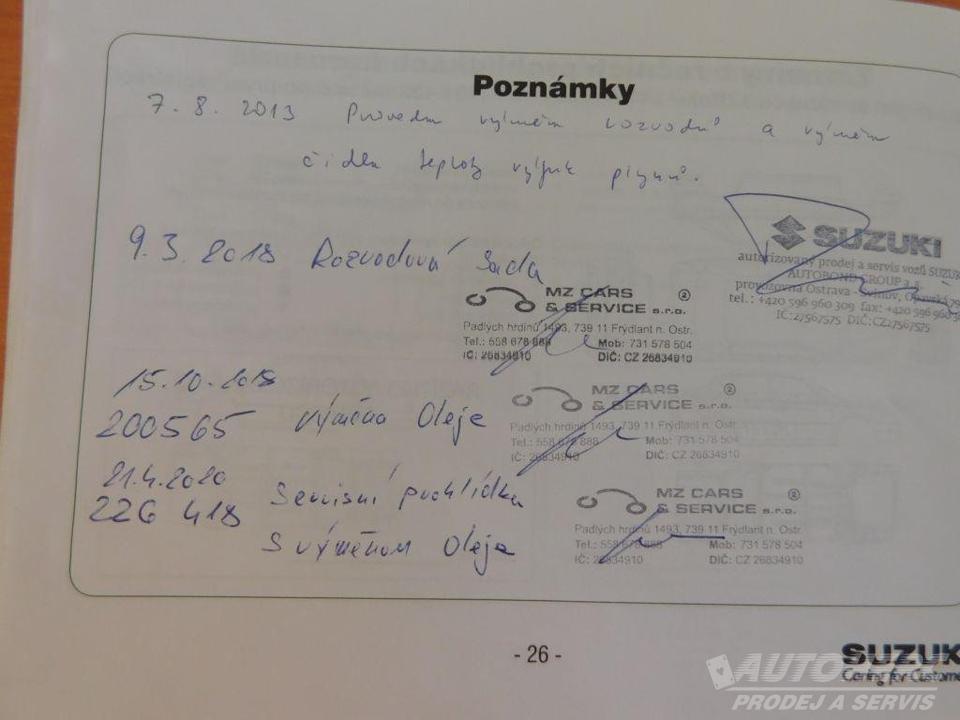 Poznámky
7. 8. 2013 Provedena výměna rozvodů a výměna
čidla teploty výfuk plynů.
SUZUKI
autorizovaný prodej a servis vozů SUZUKI
AUTOBOND GROUP a.s.
provozovna Ostrava - Svinov, Opavská
tel.: +420 596 960 309 fax: +420 596 960
IČ:27567575 DIČ:CZ27567575
9.3.2018 Rozvodová sada
MZ CARS
& SERVICE s.r.o.
2
Padlých hrdinů 1493, 739 11 Frýdlant n. Ostr.
Tel.: 558 678 888 Mob: 731 578 504
IČ: 26834910 DIČ: CZ 26834910
15.10.2018
200565 Výměna Oleje
MZ CARS
& SERVICE s.r.o.
2
Padlých hrdinů 1493, 739 11 Frýdlant n. Ostr.
Tel.: 558 678 888 Mob: 731 578 504
IČ: 26834910 DIČ: CZ 26834910
21.4.2020
226 418 Servisní prohlídka
s výměnou Oleje
MZ CARS
& SERVICE s.r.o.
2
Padlých hrdinů 1493, 739 11 Frýdlant n. Ostr.
Tel.: 558 678 888 Mob: 731 578 504
IČ: 26834910 DIČ: CZ 26834910
- 26 -
SUZUK
Caring for Custome
PRODEJ A SERVIS